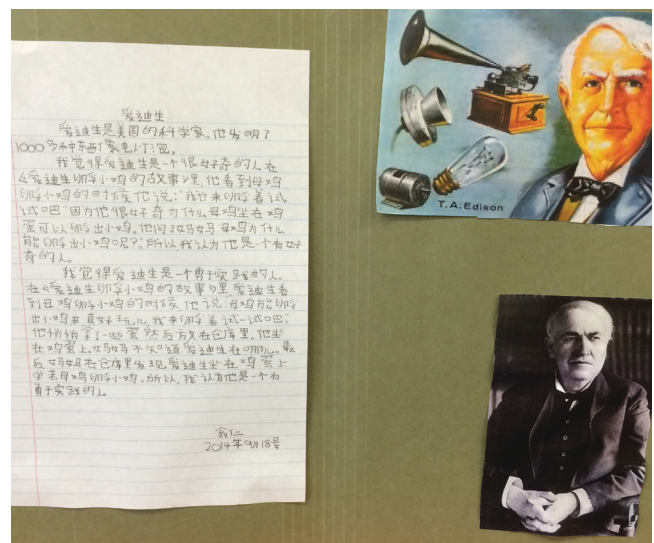 爱迪生
爱迪生是美国的科学家。他发明了
1000多种东西像电灯泡。
我觉得爱迪生是一个很好奇的人。在
《爱迪生孵小鸡的故事》里,他看到母鸡
孵小鸡的时候他说:"我也来孵着试
试吧"因为他很好奇为什么母鸡坐在鸡
蛋可以孵出小鸡。他问了妈妈母鸡为什么
能孵出小鸡呢?"所以,我认为他是个有好
奇的人。
我觉得爱迪生是一个勇于实践的人。
在《爱迪生孵小鸡的故事》里,爱迪生看
到母鸡孵小鸡的时候他说:母鸡能孵
出小鸡来,真好玩儿,我来孵着试一试吧"
他悄悄拿了一些蛋然后放在仓库里。他坐
在鸡蛋上。妈妈不知道爱迪生在哪儿。最
后,妈妈在仓库里发现爱迪生坐在鸡蛋上
学着母鸡孵小鸡。所以,我认为他是个有
勇于实践的人。
2014年9月18号
T.A. Edison